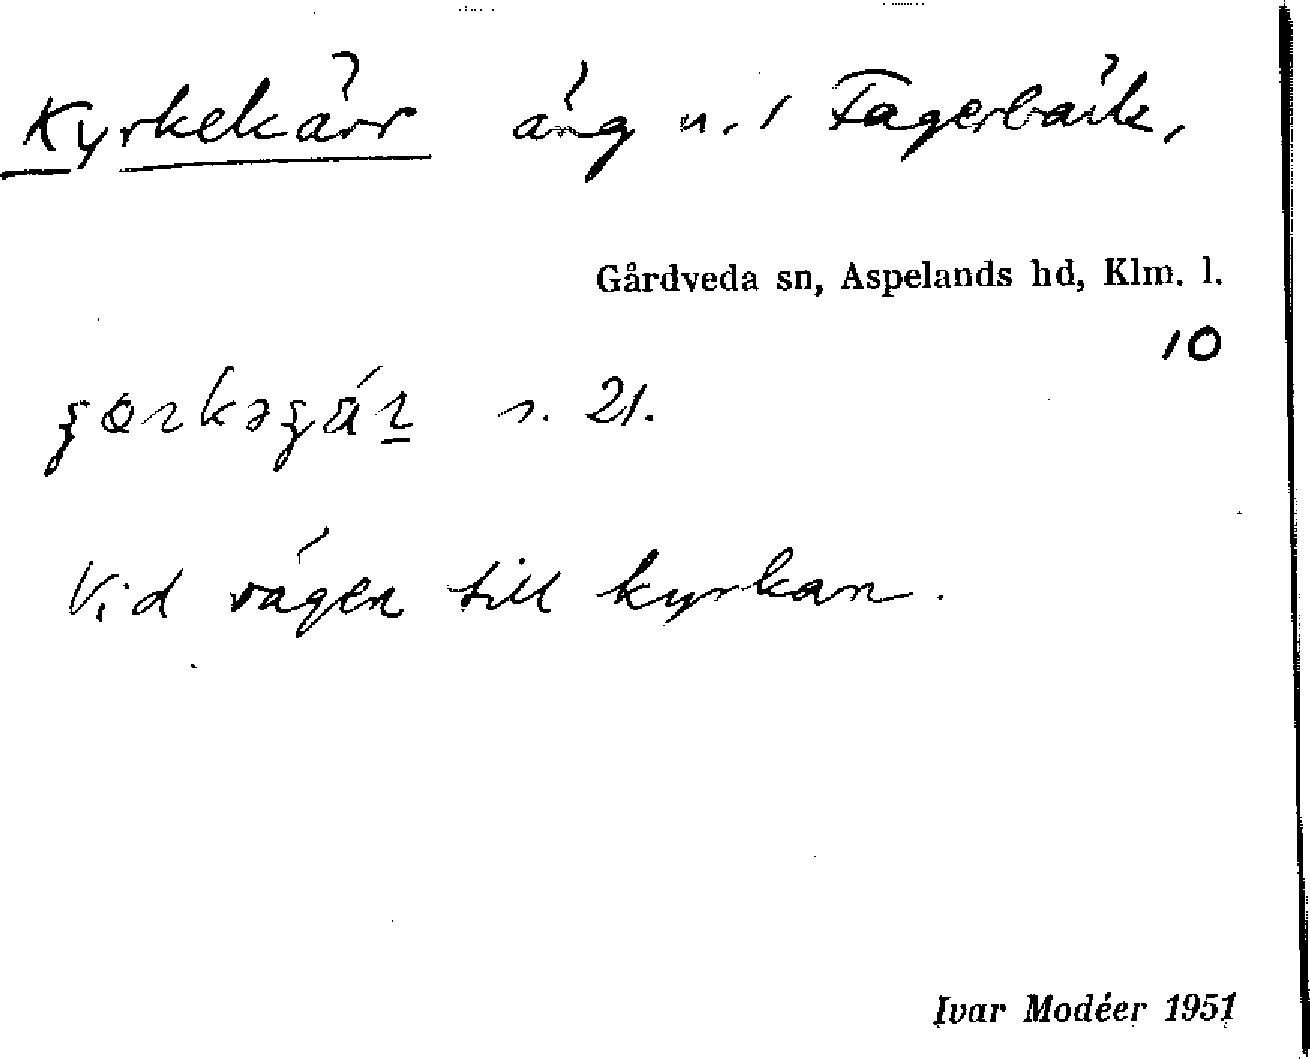 Kyrkekärr äng u. / Fagerbäck,
Gårdveda sn, Aspelands hd, Klm. l.
10
s. 21.
Vid vägen till kyrkan.
Ivar Modéer 1951